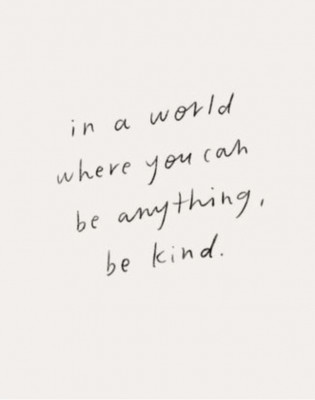 in a world
where you can
be anything,
be kind.